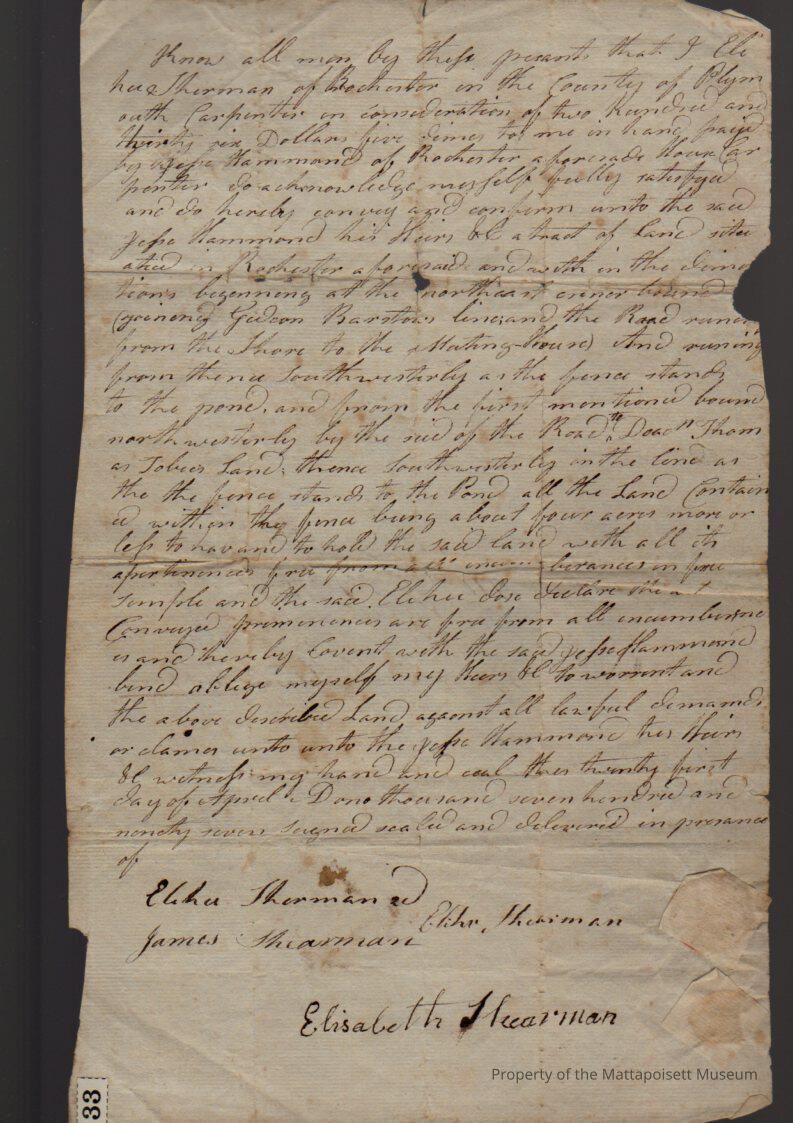 Know all men by these presants that I Eli
hu Sherman of Rochester in the County of Plym
outh Carpenter in consideration of two hundred and
thirty six Dollars five dimes to me in hand paid
by Jesse Hammond of Rochester aforesade House Car
penter do acknowledge myself fully satisfyed
and do hereby convey and conferm unto the said
Jesse Hammond his Heirs &c a tract of Land situ
ated in Rochester aforesaid and with in the dime
tions beginning at the northeast corner bound
(joining Gideon Barstows line and the Road runing
from the Shore to the Meating-House) And runing
from thence Southwesterly as the fence stands
to the pond, and from the first mentioned bound
northwesterly by the sid of the Road to Deacn Thom
as Tobees Land; thence Southwesterly in the line as
the the fence stands to the Pond all the Land Contain
ed within the fence being about four acres more or
less to hav and to hold the said land with all its
apertinences free from all incumberances in free
simple and the said Elihu dose declare the
Conveyed premenences are free from all incumberne
es and hereby Covent with the said Jesse Hammond
bind oblige myself my Heirs &c to worrent and
the above described Land against all lawful demands
or clames unto unto the Jesse Hammond his Heirs
&c witness my hand and ceal this twenty first
day of April Dono thousand seven hendred and
ninety seven Signed sealed and delivered in presance
of
Elihu Sherman 2d
Elihu Shearman
James Shearman
Elisabeth Shearman
Property of the Mattapoisett Museum
33